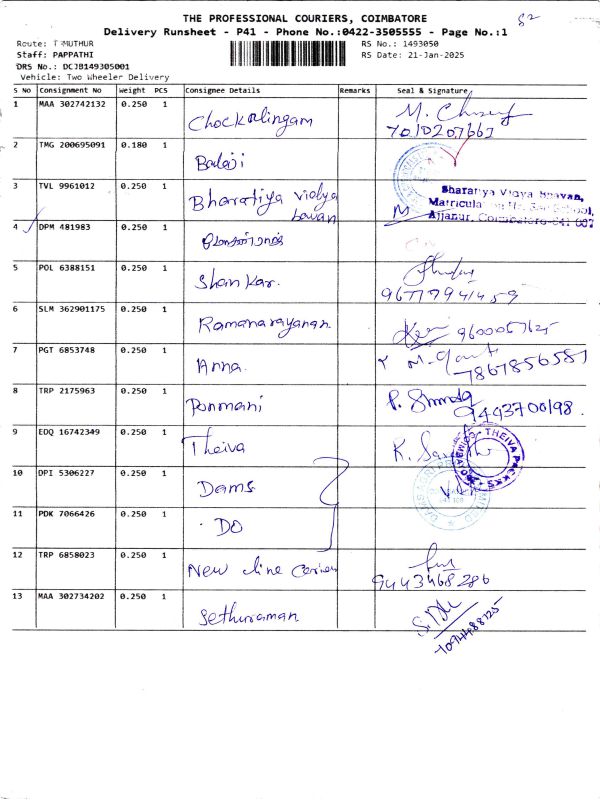 THE PROFESSIONAL COURIERS, COIMBATORE
82
Delivery Runsheet - P41 - Phone No.:0422-3505555 - Page No.:1
Route: T.MUTHUR
RS No.: 1493050
Staff: PAPPATHI
RS Date: 21-Jan-2025
DRS No.: DCJB149305001
Vehicle: Two Wheeler Delivery
S No Consignment No Weight PCS Consignee Details Remarks Seal & Signature
1 MAA 302742132 0.250 1 Chockalingam
2 TMG 200695091 0.180 1 Balaji
3 TVL 9961012 0.250 1 Bharatiya vidya bavan
Bharatiya Vidya Bhavan,
Ajjanur, Coimbatore-641
4 DPM 481983 0.250 1
5 POL 6388151 0.250 1 Shankar.
6 SLM 362901175 0.250 1 Ramanarayanan 9600057625
7 PGT 6853748 0.250 1 Anna. 7867856587
8 TRP 2175963 0.250 1 Ponmani 9443700198.
9 EDQ 16742349 0.250 1 Theiva K.
THEIVA PACKKS COIMBATORE
10 DPI 5306227 0.250 1 Dams
11 PDK 7066426 0.250 1 DO
12 TRP 6858023 0.250 1 New line
9443468286
13 MAA 302734202 0.250 1 Sethuraman